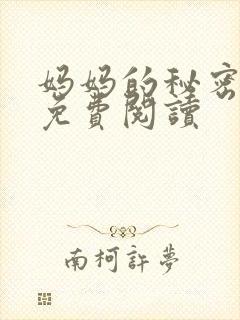 妈妈的秘密
免費閱讀
南柯許夢